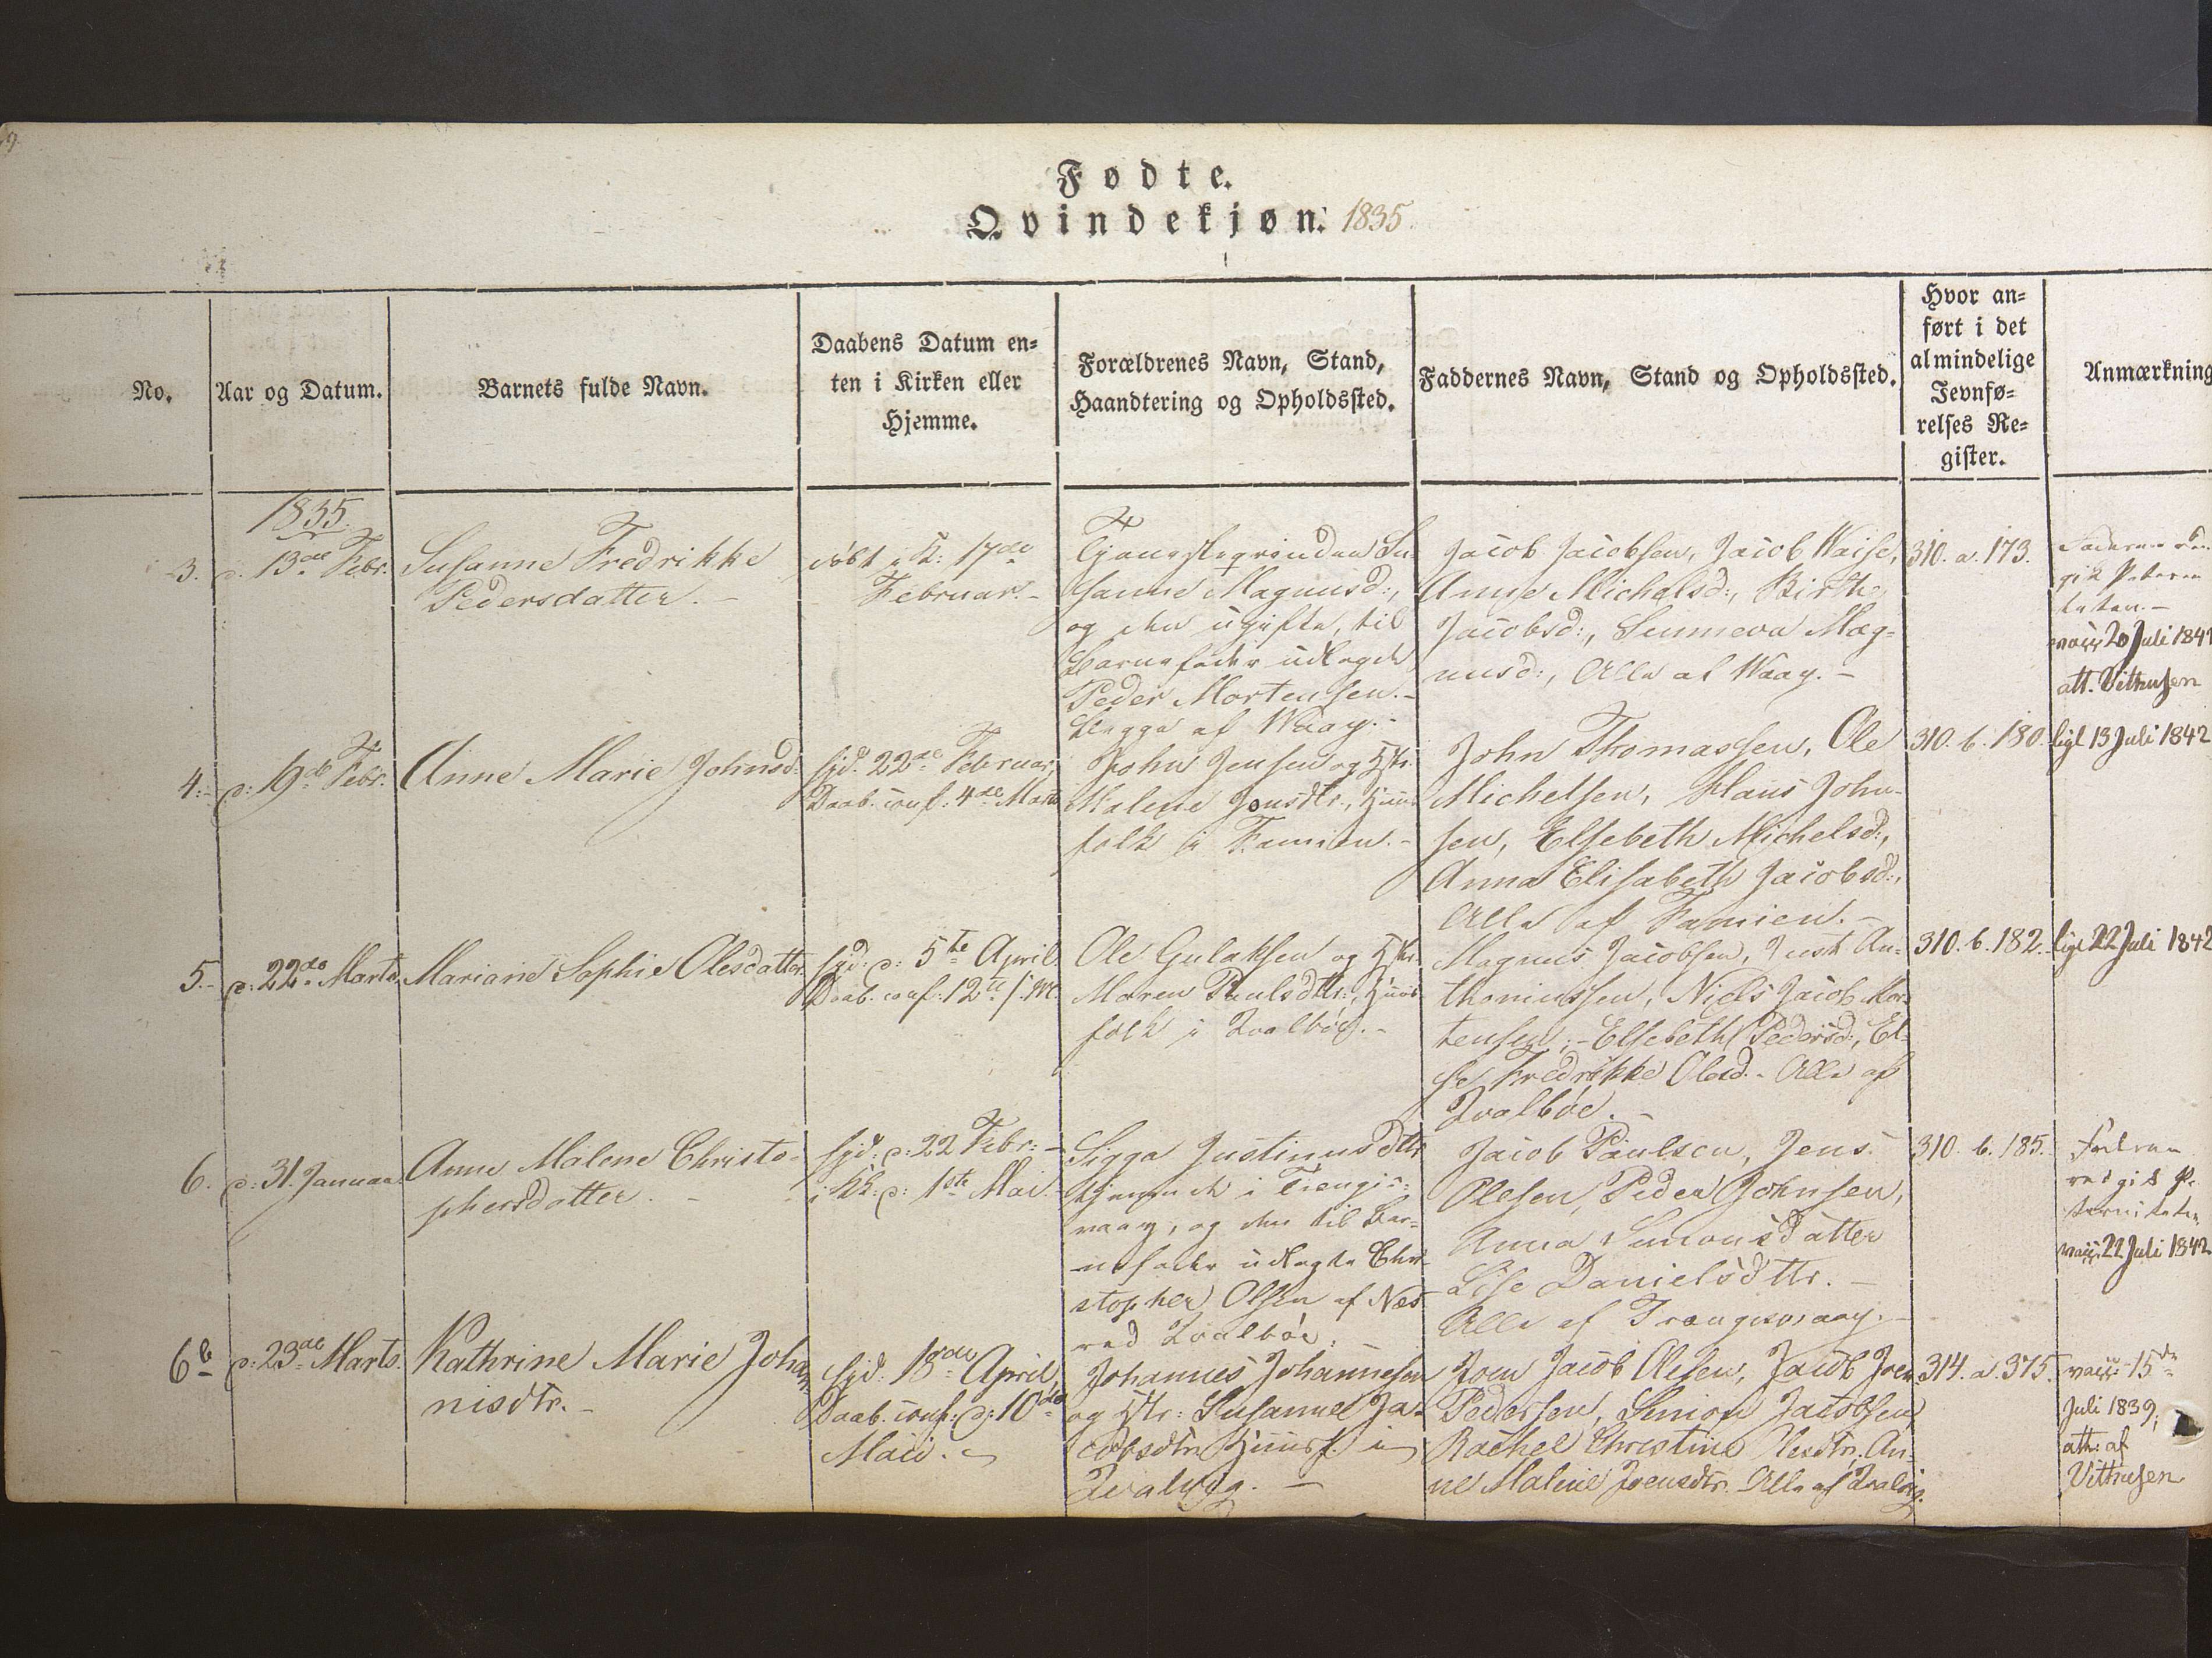 Fødte.
Qvindekjøn. 1835.
No.
Aar og Datum.
Barnets fulde Navn.
Daabens Datum en-
ten i Kirken eller
Hjemme.
Forældrenes Navn, Stand,
Haandtering og Opholdssted.
Faddernes Navn, Stand og Opholdssted.
Hvor an-
ført i det
almindelige
Jevnfø-
relses Re-
gister.
Anmærkning
1835.
3.
d. 13de Febr.
Susanne Fredrikke
Pedersdatter.-
døbt i K: 17de
Februar.-
Tjenesteqvinden Su-
sanne Magnusd:,
og den ugifte, til
Barnefader udlagde
Peder Mortensen.-
Begge af Waag.-
Jacob Jacobsen, Jacob Waise,
Anne Michelsd:, Birthe
Jacobsd:, Sunneva Mag-
nusd:, Alle af Waag.-
310. a. 173.
Faderen
gik
vacc 20 Juli 1841
att. Vithusen
4.-
d: 19de Febr.
Anne Marie Johnsd:
hjd. 22de Februar,
Daab. conf: 4de Marts
John Jensen og Hstr.
Malene Jonsdtr., Huus-
folk i Famien.-
John Thomassen, Ole
Michelsen, Hans John-
sen, Elsebeth Michelsd:,
Anna Elisabeth Jacobsd:,
Alle af Famien.-
310. b. 180.
ligl 13 Juli 1842
5.-
d: 22de Marts
Mariane Sophie Olesdatter.
hjd: d: 5te April.
Daab. conf: 12te s. M.
Ole Gulaksen og Hstr.
Maren Poulsdtr., Huus-
folk i Qvalbøe.-
Magnus Jacobsen, Just An-
thoniussen, Niels Jacob Mor-
tensen,- Elsebeth Pedersd:, El-
se Fredrikke Olesd.- Alle af
Qvalbøe.-
310. b. 182.-
ligl 22 Juli 1842
6.
d: 31. Januar
Anne Malene Christo-
phersdatter.-
hjd: d: 22 Febr:-
i KK: d: 1ste Mai.
Sigga Justinusdtr
tjenende i Trongis-
vaag, og den til Bar-
nefader udlagte Chri-
stopher Olsen af Næs
ved Qvalbøe.
Jacob Paulsen, Jens
Olesen, Peder Johnsen,
Anna Simonsdatter
Lise Danielsdttr.-
Alle af Trangisvaag.-
310. b. 185.
Faderen
vedgik Pa-
terniteten
vacc. 22 Juli 1842
6b
d: 23de Marts.
Kathrine Marie Johan-
nisdtr.-
hjd. 18de April,
Daab. conf: d: 10de
Maii.
Johannes Johannesen
og Hstr: Susanne Ja-
cobsdtr. Huusf. i
Qvalvig.-
Joen Jacob Olesen, Jacob Joen
Pedersen, Simon Jacobsen,
Rachel Christine Olesdtr. An-
ne Malene Joensdtr. Alle af Qvalvig.
314. a. 375.
vacc 15de
Juli 1839,
att: af
Vithusen